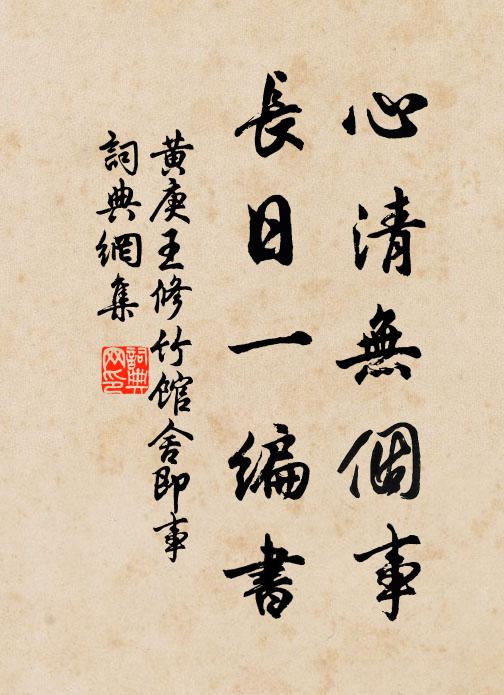 心清無個事
長日一編書
黃庚王修竹館舍即事
詞典網集
詞典网印